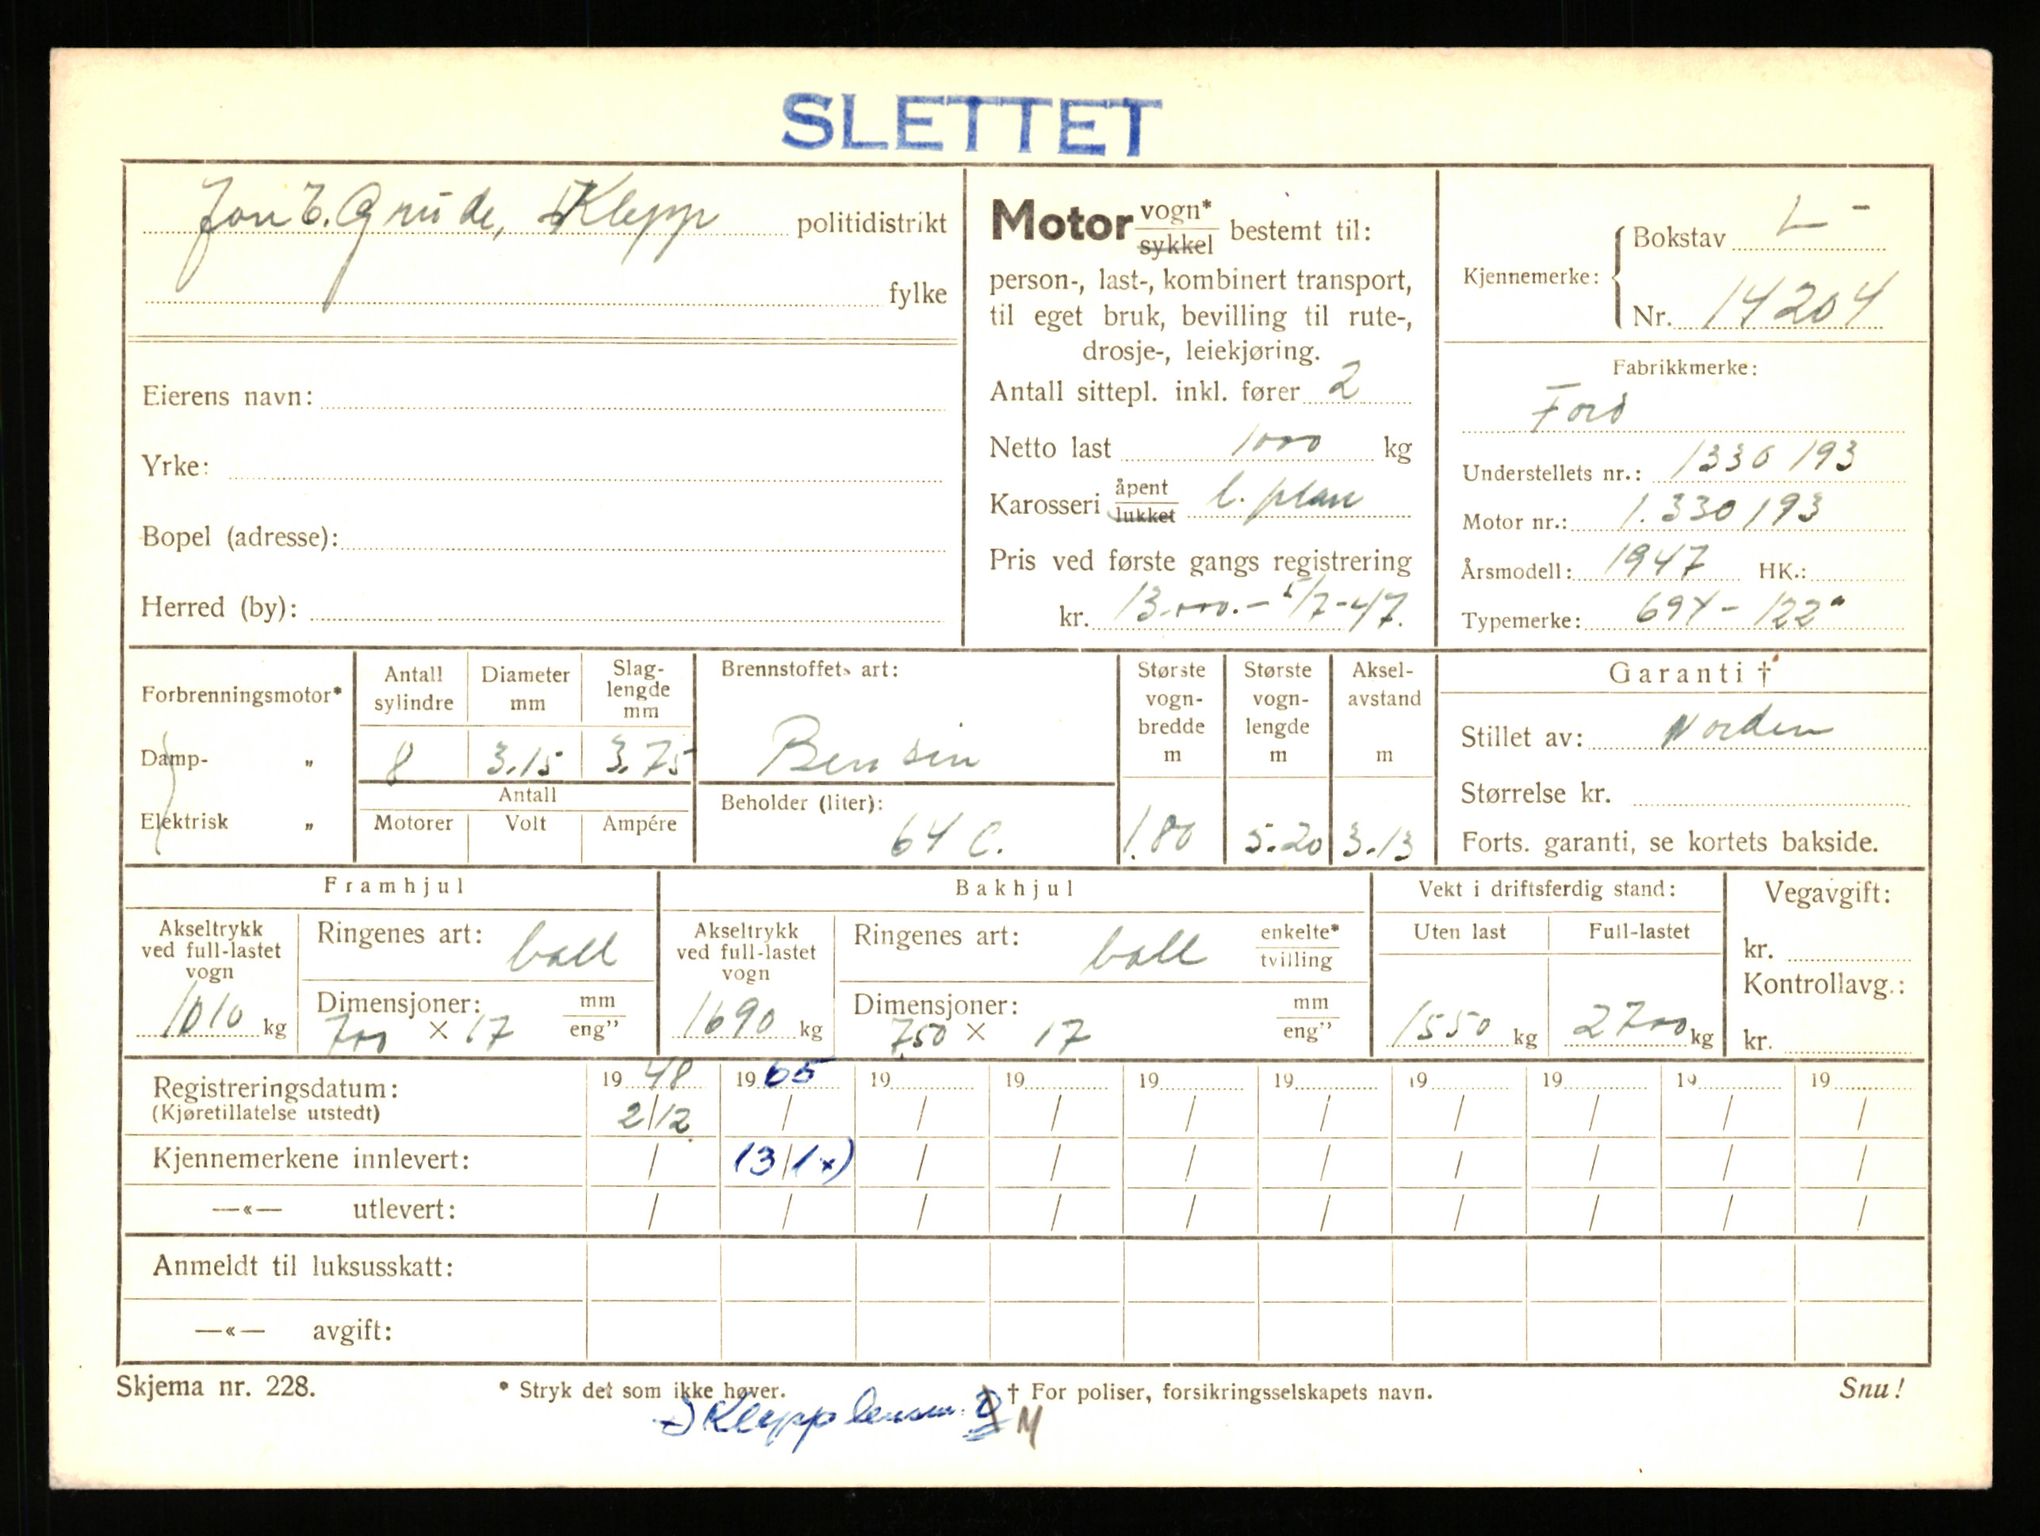 SLETTET
Jon E. Grude, Klepp politidistrikt
fylke
Eierens navn:
Yrke:
Bopel (adresse):
Herred (by):
Motor vogn* sykkel bestemt til:
person-, last-, kombinert transport,
til eget bruk, bevilling til rute-,
drosje-, leiekjøring.
Antall sittepl. inkl. fører 2
Netto last 1000 kg
Karosseri åpent lukket l. plan
Pris ved første gangs registrering
kr. 13.000.- 5/7-47.
Kjennemerke:
Bokstav L-
Nr. 14204
Fabrikkmerke:
Ford
Understellets nr.: 1330193
Motor nr.: 1.330193
Årsmodell: 1947 HK.:
Typemerke: 69Y-122"
Forbrenningsmotor*
Damp- „
Elektrisk „
Antall sylindre
8
Diameter mm
3.15
Slag-lengde mm
3.75
Antall
Motorer Volt Ampére
Brennstoffets art:
Bensin
Beholder (liter):
64 C.
Største vogn-bredde m
1.80
Største vogn-lengde m
5.20
Aksel-avstand m
3.13
Garanti †
Stillet av: Norden
Størrelse kr.
Forts. garanti, se kortets bakside.
Framhjul
Akseltrykk ved full-lastet vogn
1010 kg
Ringenes art: ball
Dimensjoner: mm eng"
700 × 17
Bakhjul
Akseltrykk ved full-lastet vogn
1690 kg
Ringenes art: ball enkelte* tvilling
Dimensjoner: mm eng"
750 × 17
Vekt i driftsferdig stand:
Uten last Full-lastet
1550 kg 2700 kg
Vegavgift:
kr.
Kontrollavg.:
kr.
Registreringsdatum: 1948 1965 19 19 19 19 19 19 19 19
(Kjøretillatelse utstedt) 2/12 / / / / / / / / /
Kjennemerkene innlevert: / 13/1 x) / / / / / / / /
—«— utlevert: / / / / / / / / / /
Anmeldt til luksusskatt:
—«— avgift:
Skjema nr. 228. * Stryk det som ikke høver. † For poliser, forsikringsselskapets navn. Snu!
Klepp lensm. M